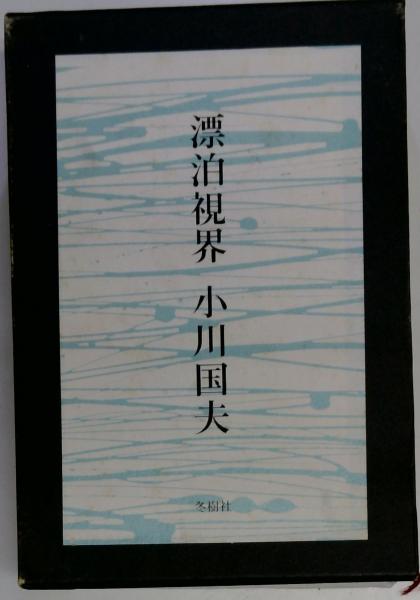 漂泊視界 小川国夫
冬樹社